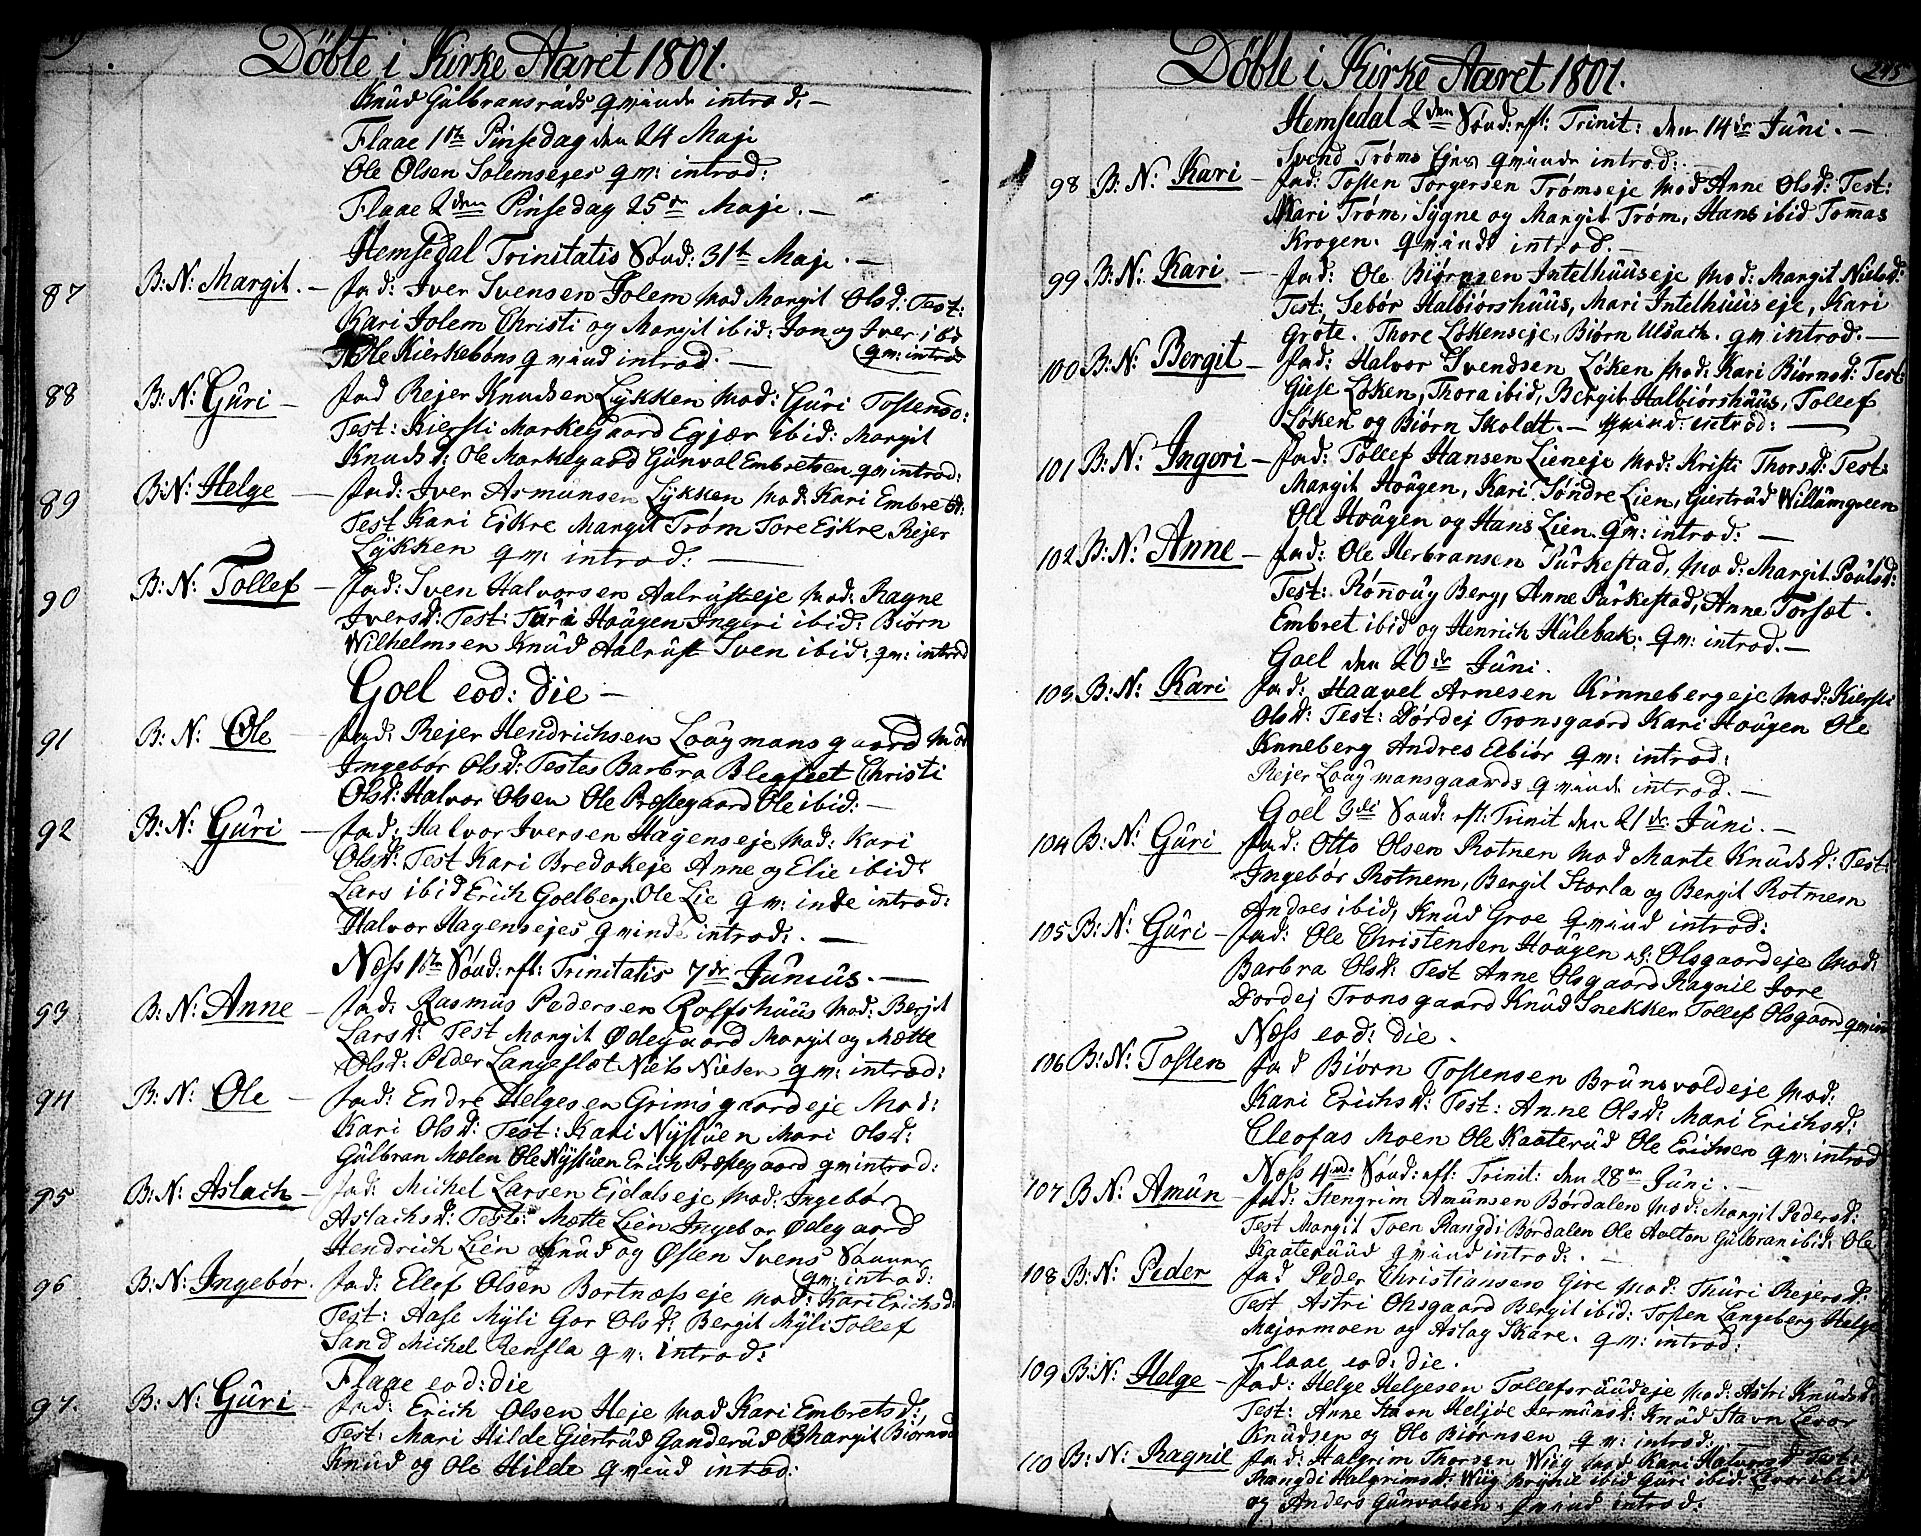 Döbte i Kirke Aaret 1801.
Knüd Gülbransrüds qvinde introd: —
Flaae 1ste Pinsedag den 24 Maje
Ole Olsen Solemsejes qv: introd:
Flaae 2den Pinsedag 25de Maje. —
Hemsedal Trinitatis Sönd: 31te Maje. —
87 B: N: Margit. — Fad: Iver Svensen Jolem Mod Margit Olsd: Test:
Kari Jolem Christi og Margit ibid: Jon og Iver ibd
Ole Kierkebøns qvind introd. — qv: introd
88 B: N: Güri — Fad Rejer Knudsen Lykken Mod: Güri Tostensd:
Test: Kiersti Markegaard Egjær ibid: Margit
Knudsd: Ole Markegaard Günvol Embretsen qv introd:
89 B: N: Helge — Fad: Iver Asmünsen Lykken Mod: Kari Embretsd:
Test Kari Ejkre Margit Trøm Tore Ejkre Rejer
Lykken qv: introd: —
90 B: N: Tollef — Fad: Sven Halvorsen Aalrusteje Mod: Ragne
Iversd: Test: Türi Hougen Ingeri ibid: Biørn
Wilhelmsen Knüd Aalrust Sven ibid: qv: introd
Goel eod: die —
91 B: N: Ole — Fad: Rejer Hendrichsen Lougmansgaard Mod:
Ingebør Olsd: Testes Barbra Blegfeet Christi
Olsd: Halvor Olsen Ole Præstegaard Ole ibid: —
92 B: N: Güri — Fad: Halvor Iversen Hagenseje Mod: Kari
Olsd: Test Kari Bredokeje Anne og Elie ibid:
Lars ibid Erich Goelberg, Ole Lie qv: inde introd:
Halvor Hagensejes qvinde introd: . —
Næss 1ste Sönd: eft: Trinitatis 7de Junius. —
93 B: N: Anne — Fad: Rasmüs Pedersen Rolfshüüs Mod: Berjit
Larsd: Test Margit Ødegaard Margit og Mætte
Olsd: Peder Langeslet Niels Nielsen qv: introd:
94 B: N: Ole — Fad: Endre Helgesen Grimsgaardeje Mod:
Kari Olsd: Test: Kari Nystüen Mari Olsd:
Gülbran Mælen Ole Nystüen Erich Præstegaard qv introd:
95 B: N: Aslach — Fad: Michel Larsen Eidalseje Mod: Ingebør
Aslachsd: Test: Mætte Lien Ingebor Ødegaard
Hendrich Lien Knüd og Østen Svens Sönner
qv: introd:
96 B: N: Ingebør. Fad: Ellef Olsen Bortnæsseje Mod: Kari Erichsd:
Test: Aase Myli Gor Olsd: Bergit Myli Tollef
Sand Michel Rensla qv: introd:
Flaae eod: die
97. B: N: Güri — Fad: Erich Olsen Heje Mod Kari Embretsd:
Test: Mari Hilde Giertrüd Ganderüd Margit Biørnsd
Knüd og Ole Hilde qvind introd:
Döbte i Kirke Aaret 1801.
245
Hemsedal 2den Sönd: eft: Trinit: den 14de Juni. —
Svend Trøms Ejes qvinde introd:
98 B: N: Kari — Fad: Tosten Torgersen Trømseje Mod Anne Olsd: Test:
Mari Trøm, Sygne og Margit Trøm, Hans ibid Tomas
Krogen. qvinde introd. —
99 B: N: Kari — Fad: Ole Biørnsen Intelhüüseje Mod: Margit Nielsd:
Test, Sebør Halbiørshüüs, Mari Intelhüüseje, Kari
Grøte. Thore Løkenseje, Biørn Ulsach. qv introd. —
100 B: N: Bergit — Fad: Halvor Svendsen Løken Mod: Kari Biørnsd: Test:
Giese Løken, Thora ibid, Bergit Halbiørshüüs, Tollef
Løken og Biørn Skoldt. — qvind: introd: —
101 B: N: Ingeri — Fad: Tollef Hansen Lieneje Mod: Kristi Thorsd: Test:
Margit Hougen, Kari Søndre Lien, Giertrüd Willümgveen
Ole Hougen og Hans Lien. qv: introd: —
102 B: N: Anne — Fad: Ole Herbransen Pürkestad, Mod: Margit Poülsd:
Test: Rønnoug Berg, Anne Pürkestad, Anne Torset.
Embret ibid og Henrich Hülebak. qv: introd. —
Goel den 20de Juni.
103 B: N: Kari — Fad: Haavel Arnesen Kinnebergeje Mod: Kiersti
Olsd: Test: Dordej Tronsgaard Kari Hougen Ole
Knneberg Andres Elbiør qv: introd:
Rejer Lougmansgaards qvinde introd. —
Goel 3die Sönd: eft: Trinit den 21de Juni. —
104 B: N: Güri Fad: Otto Olsen Rotnem Mod Marte Knüdsd: Test:
Ingebør Rotnem, Bergit Storla og Bergit Rotnem
Andres ibid, Knüd Groe qvind introd:
105 B: N: Güri — Fad: Ole Christensen Hougen Olsgaardeje Mod:
Barbra Olsd: Test Anne Olsgaard Ragnil Jore
Dordej Tronsgaard Knüd Snekken Tollef Olsgaard qvin
Næss eod: die.
106 B: N: Tosten Fad Biørn Tostensen Brünsvoldeje Mod:
Kari Erichsd: Test: Anne Olsd: Mari Erichsd:
Cleofas Moen Ole Kaaterüd Ole Erichsen qv: introd
Næss 4de Sönd: eft: Trinit: den 28de Juni. —
107 B N: Amün — Fad: Stengrim Amünsen Børdalen Mod: Margit Pedersd:
Test Margit Tven Rangdi Børdalen Ole Aalton Gülbran ibid: Ole
Kaaterüüd qvind introd: .
108 B: N: Peder Fad Peder Christiansen Gire Mod: Thüri Rejersd:
Test, Astri Olsgaard Bergit ibid: Tosten Langeberg Helge
Majormoen og Aslag Skare. qv: introd:
Flaae eod: die.
109 B: N: Helge — Fad: Helge Helgesen Tollefsrüüdeje Mod: Astri Knüdsd:
Test: Anne Stavn Heljøe Jermünsd: Knüd Stavn Levor
Knüdsen og Ole Biørnsen qv: introd.
110 B: N: Ragnil Fad: Halgrim Thorsen Wiig Mod Kari Halvorsd Test:
Rangdi Halgrimsd: Wiig Brynil ibid Güri ibid: Levor ibid
og Anders Günvalsen. qvind introd: